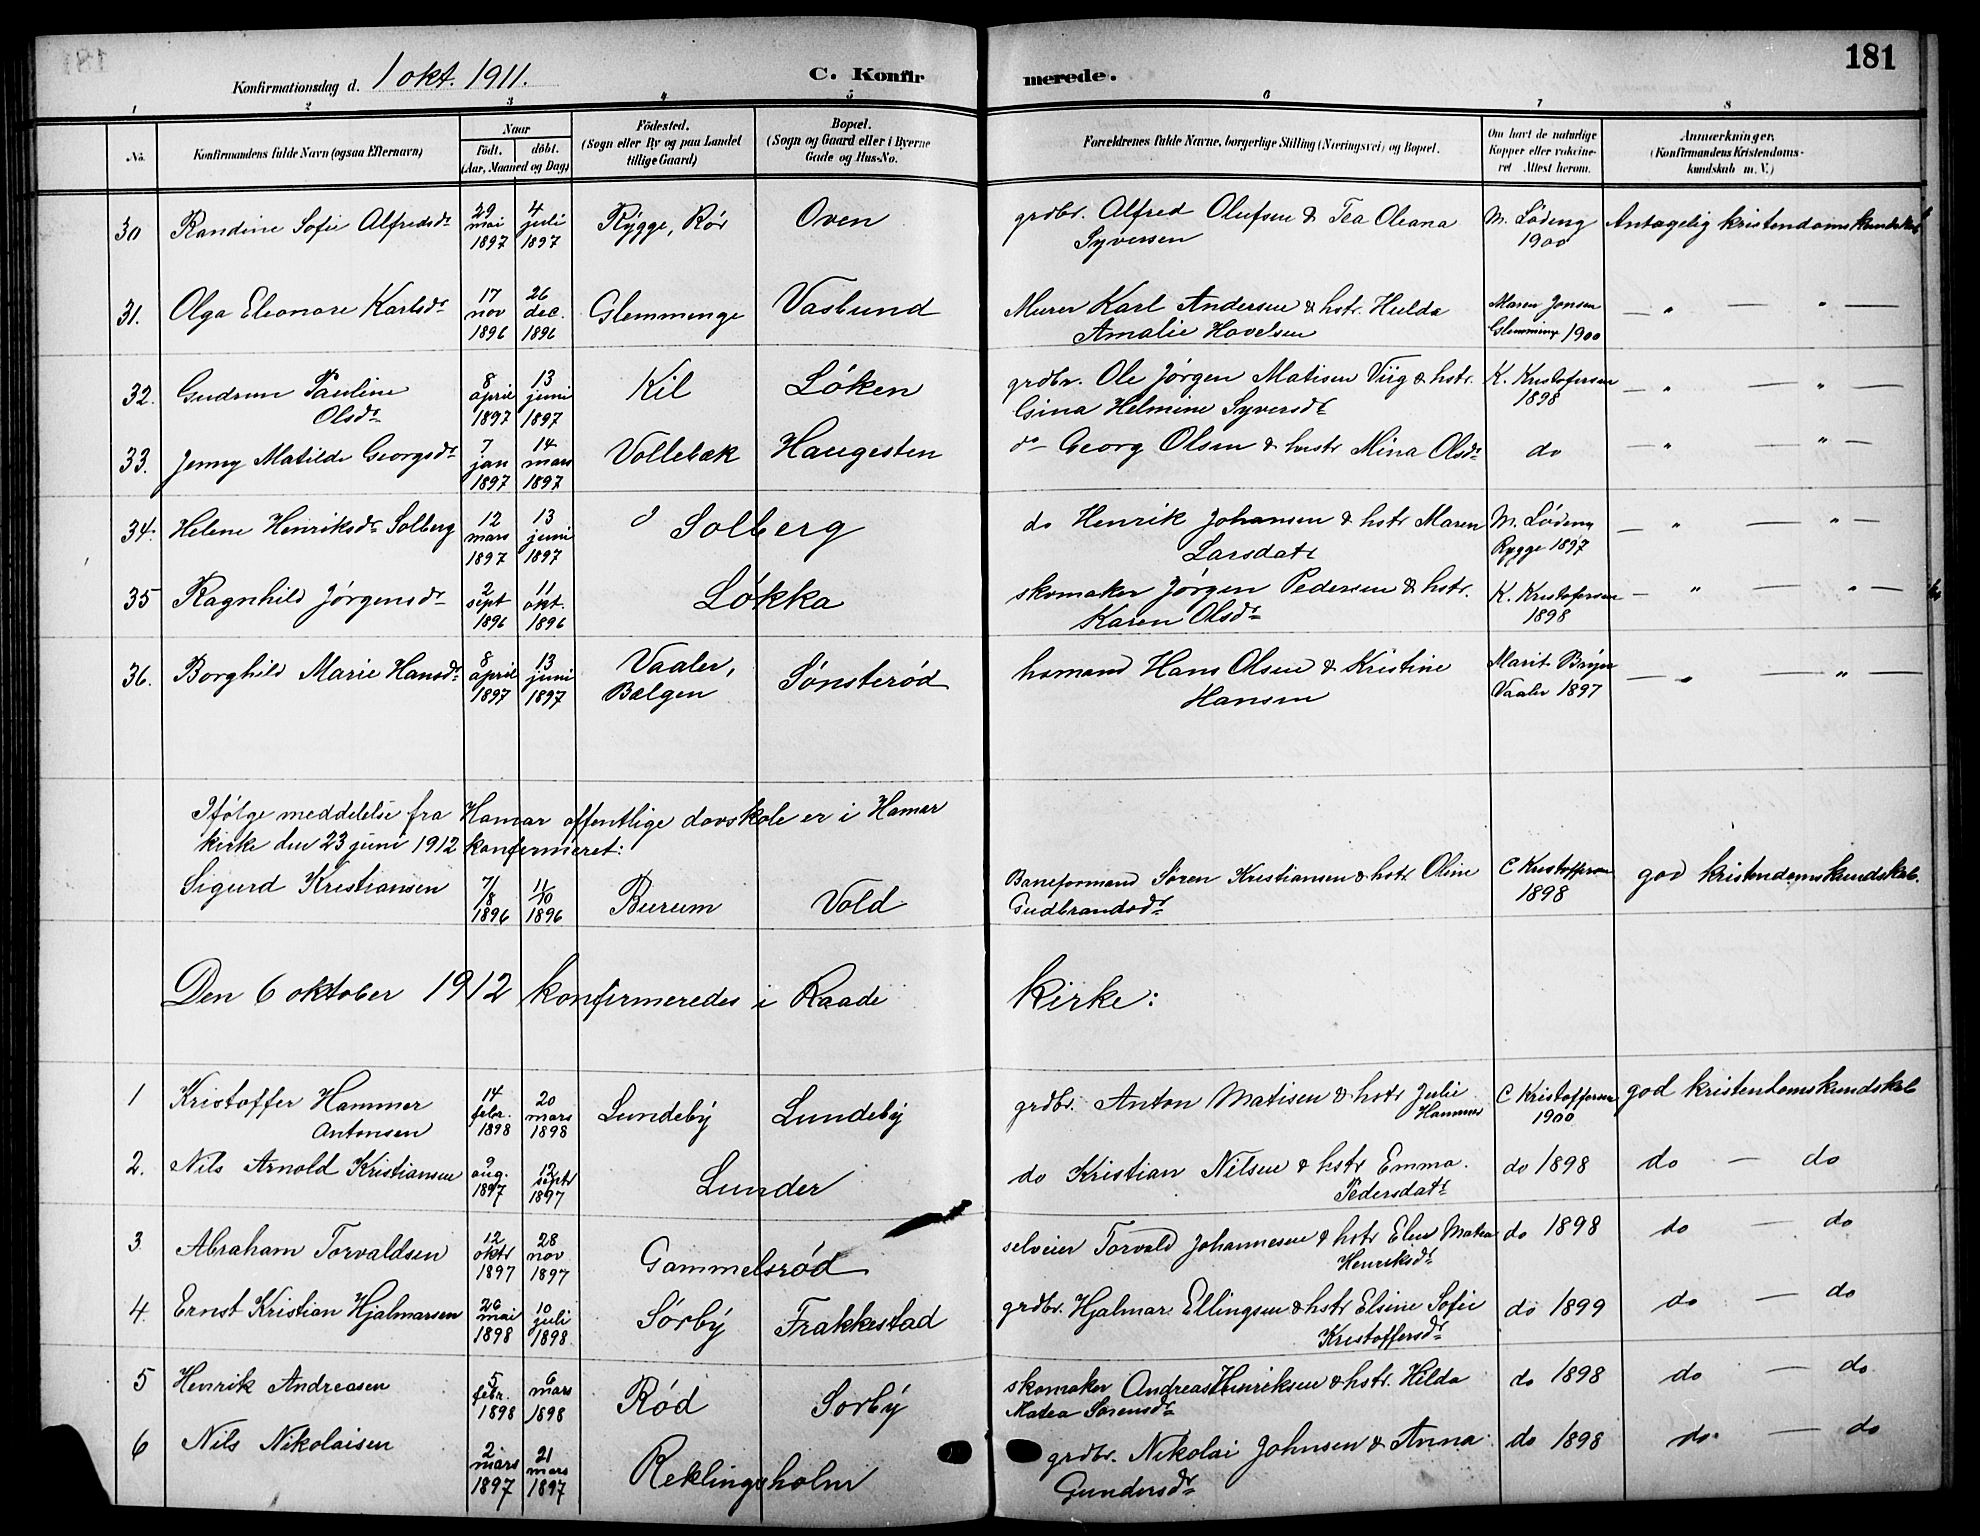 181
Konfirmationsdag d. 1 okt. 1911.
C. Konfirmerede.
1 2 3 4 5 6 7 8
No.
Konfirmandens fulde Navn (ogsaa Efternavn)
Naar
födt. döbt.
(Aar, Maaned og Dag)
Födested.
(Sogn eller By og paa Landet
tillige Gaard)
Bopæl.
(Sogn og Gaard eller i Byerne
Gade og Hus-No.
Forældrenes fulde Navne, borgerlige Stilling (Næringsvei) og Bopæl.
Om havt de naturlige
Kopper eller vaksine-
ret Attest herom.
Anmærkninger.
(Konfirmandens Kristendoms-
kundskab m. V.)
30 Randine Sofie Alfredsdr 29 mai 1897 4 juli 1897 Rygge, Rör Oven grdbr. Alfred Olufsen & Tea Oleana
Syversen M. Lödeng 1900 Antagelig kristendomskundskab
31. Olga Eleonore Karlsdr 17 nov 1896 26 dec. 1896 Glemminge Vaslund Murer Karl Andersen & hstr. Hulda
Amalie Hovelsen Maren Jonsen Glemminge 1900 — " — " —
32. Gudrun Pauline
Olsdr 8 april 1897 13 juni 1897 Kil Löken grdbr. Ole Jörgen Matisen Viig & hstr.
Gina Helmine Syversdr K. Kristofersen 1898 — " — " —
33. Jenny Matilde Georgsdr 7 jan 1897 14 mars 1897 Vollebæk Haugesten do Georg Olsen & hustr Mina Olsdr do — " — " —
34. Helene Henriksdr Solberg 12 mars 1897 13 juni 1897 Solberg do Henrik Johansen & hstr Maren
Larsdatr M. Lödeng Rygge 1897 — " — " —
35 Ragnhild Jörgensdr 2 sept 1896 11 okt. 1896 Lökka skomaker Jörgen Pedersen & hstr.
Karen Olsdr K. Kristofersen 1898 — " — " —
36. Borghild Marie Hansdr 8 april 1897 13 juni 1897 Vaaler,
Bælgen Sönsteröd husmand Hans Olsen & Kristine
Hansen Marit Bryn Vaaler 1897 — " — " —
Ifölge meddelelse fra Hamar offentlige dövskole er i Hamar
kirke den 23 juni 1912 konfirmeret:
Sigurd Kristiansen 7/8 1896 11/10 1896 Burum Vold Baneformand Sören Kristiansen & hstr. Oline
Gudbrandsdr C Kristoffersen 1898 god kristendomskundskab.
Den 6 oktober 1912 konfirmeredes i Raade kirke:
1 Kristoffer Hammer
Antonsen 14 febr. 1898 20 mars 1898 Lundeby Lundeby grdbr. Anton Matisen & hstr Julie
Hammer C Kristoffersen 1900 god kristendomskundskab
2. Nils Arnold Kristiansen 9 aug. 1897 12 septr 1897 Lunder do Kristian Nilsen & hstr Emma
Pedersdatr do 1898 do — do
3. Abraham Torvaldsen 12 oktr 1897 28 nov. 1897 Gammelsröd selveier Torvald Johannesen & hstr Elen Matea
Henriksdr do 1898 do — do
4. Ernst Kristian Hjalmarsen 26 mai 1898 10 juli 1898 Sörby Frakkestad grdbr. Hjalmar Ellingsen & hstr Elsine Sofie
Kristoffersdr do 1899 do — do
5 Henrik Andreasen 5 febr. 1898 6 mars 1898 Röd Sörby skomaker Andreas Henriksen & hstr. Hilda
Matea Sörensdr do 1898 do — do
6 Nils Nikolaisen 2 mars 1897 21 mars 1897 Reklingsholm grdbr. Nikolai Johnsen & Anna
Gundersdr do 1898 do — do